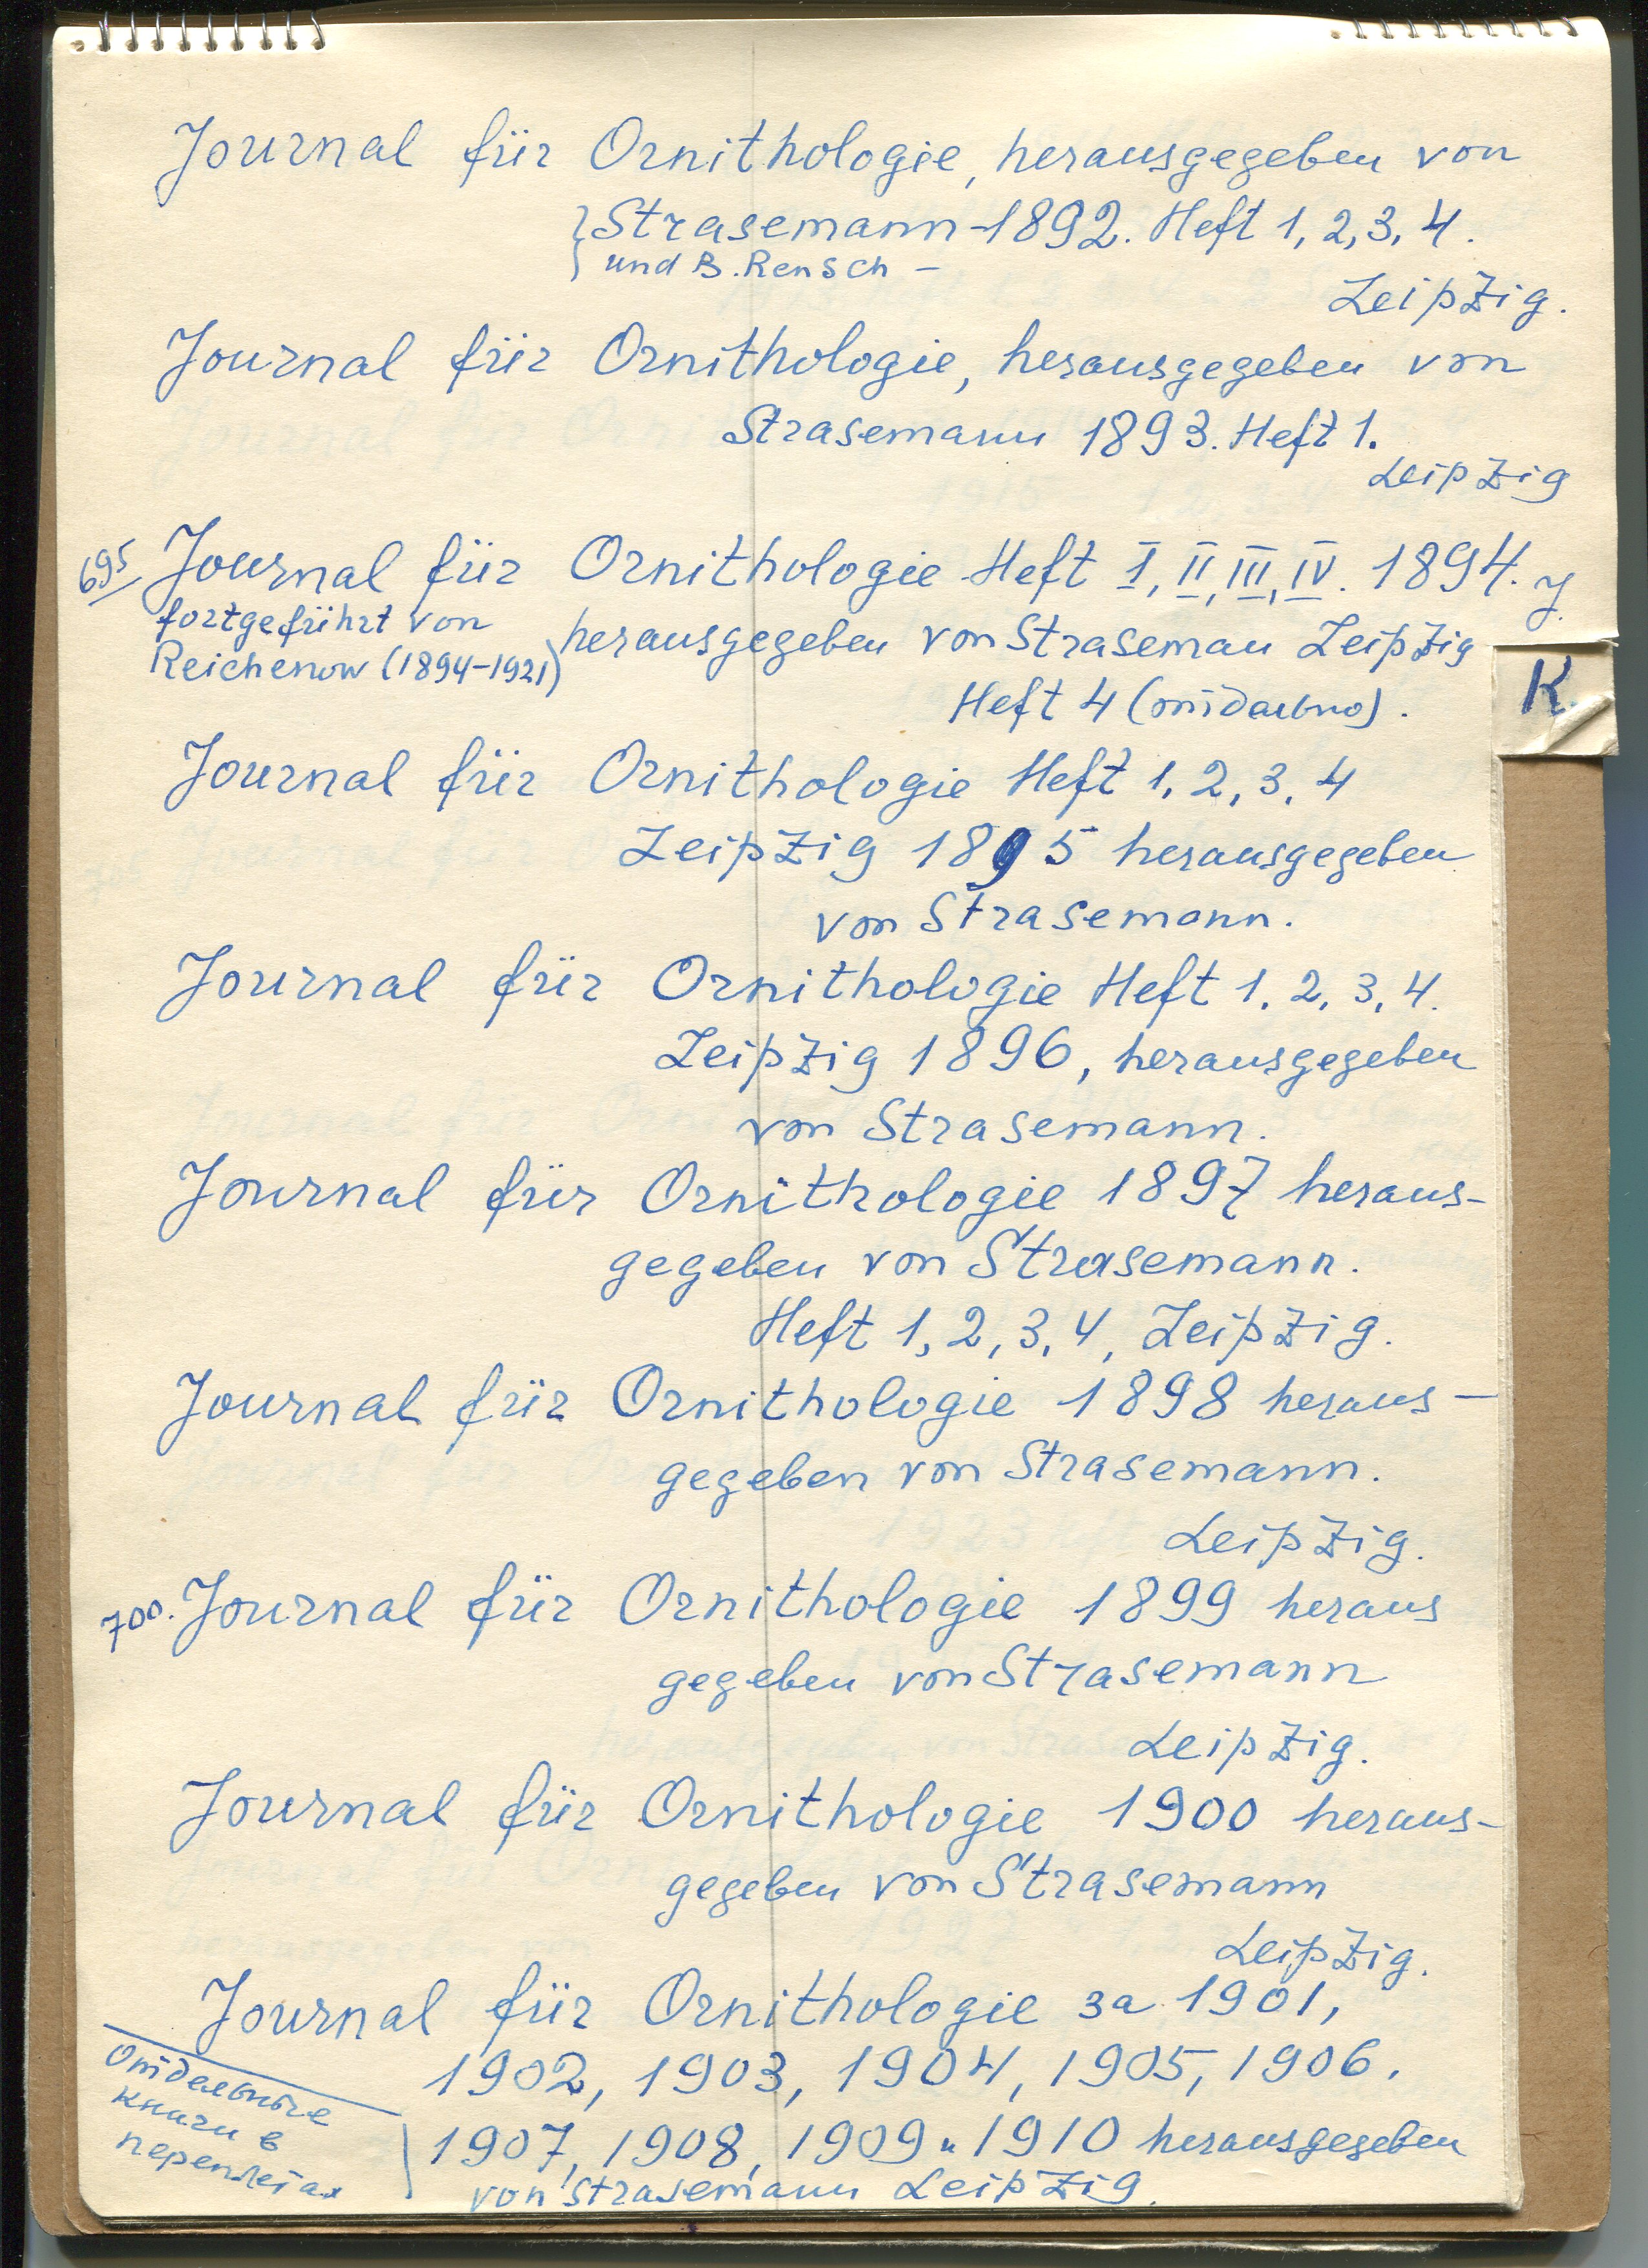 Journal für Ornithologie, herausgegeben von
Strasemann-1892. Heft 1, 2, 3, 4.
und B. Rensch –
Leipzig.
Journal für Ornithologie, herausgegeben von
Strasemann 1893. Heft 1.
Leipzig
695 Journal für Ornithologie Heft I, II, III, IV. 1894. y
fortgeführt von
Reichenow (1894-1921)
herausgegeben von Straseman Leipzig
K.
Heft 4 (отдельно).
Journal für Ornithologie Heft 1, 2, 3, 4
Leipzig 1895 herausgegeben
von Strasemann.
Journal für Ornithologie Heft 1, 2, 3, 4.
Leipzig 1896, herausgegeben
von Strasemann.
Journal für Ornithologie 1897 heraus-
gegeben von Strasemann.
Heft 1, 2, 3, 4, Leipzig.
Journal für Ornithologie 1898 heraus-
gegeben von Strasemann.
Leipzig.
700. Journal für Ornithologie 1899 heraus
gegeben von Strasemann
Leipzig.
Journal für Ornithologie 1900 heraus-
gegeben von Strasemann
Leipzig.
Journal für Ornithologie за 1901,
1902, 1903, 1904, 1905, 1906,
1907, 1908, 1909 и 1910 herausgegeben
von Strasemann Leipzig.
Отдельные
книги в
переплетах